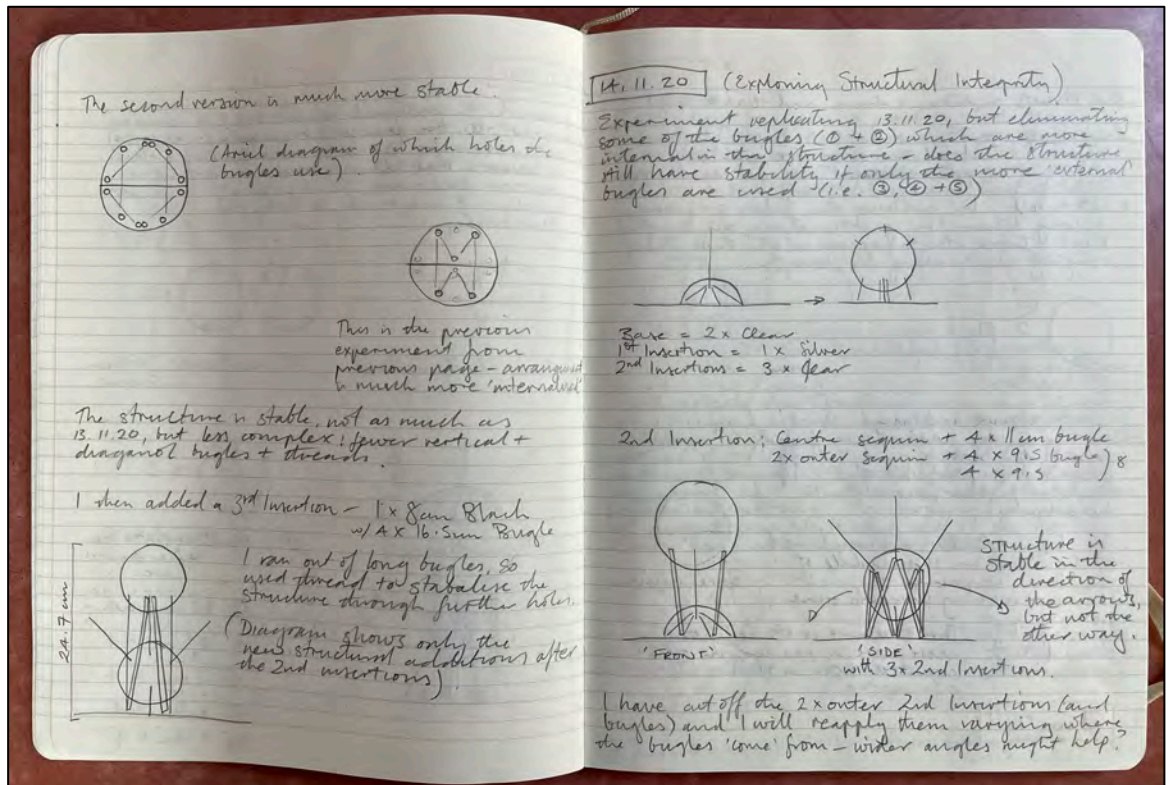 The second version is much more stable.
(Arial diagram of which holes the
bugles use).
This is the previous
experiment from
previous page - arrangement
is much more 'internalised'
The structure is stable, not as much as
13.11.20, but less complex; fewer vertical +
diaganol bugles + threads.
I then added a 3rd Insertion - 1 x 8cm Black
w/ 4 x 16.5cm Bugle
I ran out of long bugles, so
used thread to stabalise the
structure through further holes.
(Diagram shows only the
new structural additions after
the 2nd insertions).
24.7 cm
14.11.20 (Exploring Structural Integrity)
Experiment replicating 13.11.20, but eliminating
some of the bugles (① + ②) which are more
internal in the structure - does the structure
still have stability if only the more 'external'
bugles are used (i.e. ③, ④ + ⑤)
Base = 2 x Clear
1st Insertion = 1 x Silver
2nd Insertions = 3 x Clear
2nd Insertion: Centre sequin + 4 x 11cm bugle
2x outer sequin + 4 x 9.5 bugle) 8
4 x 9.5
Structure is
stable in the
direction of
the arrows,
but not the
other way.
'FRONT'
'SIDE'
with 3x 2nd Insertions.
I have cut off the 2x outer 2nd Insertions (and
bugles) and I will reapply them varying where
the bugles 'come' from - wider angles might help?